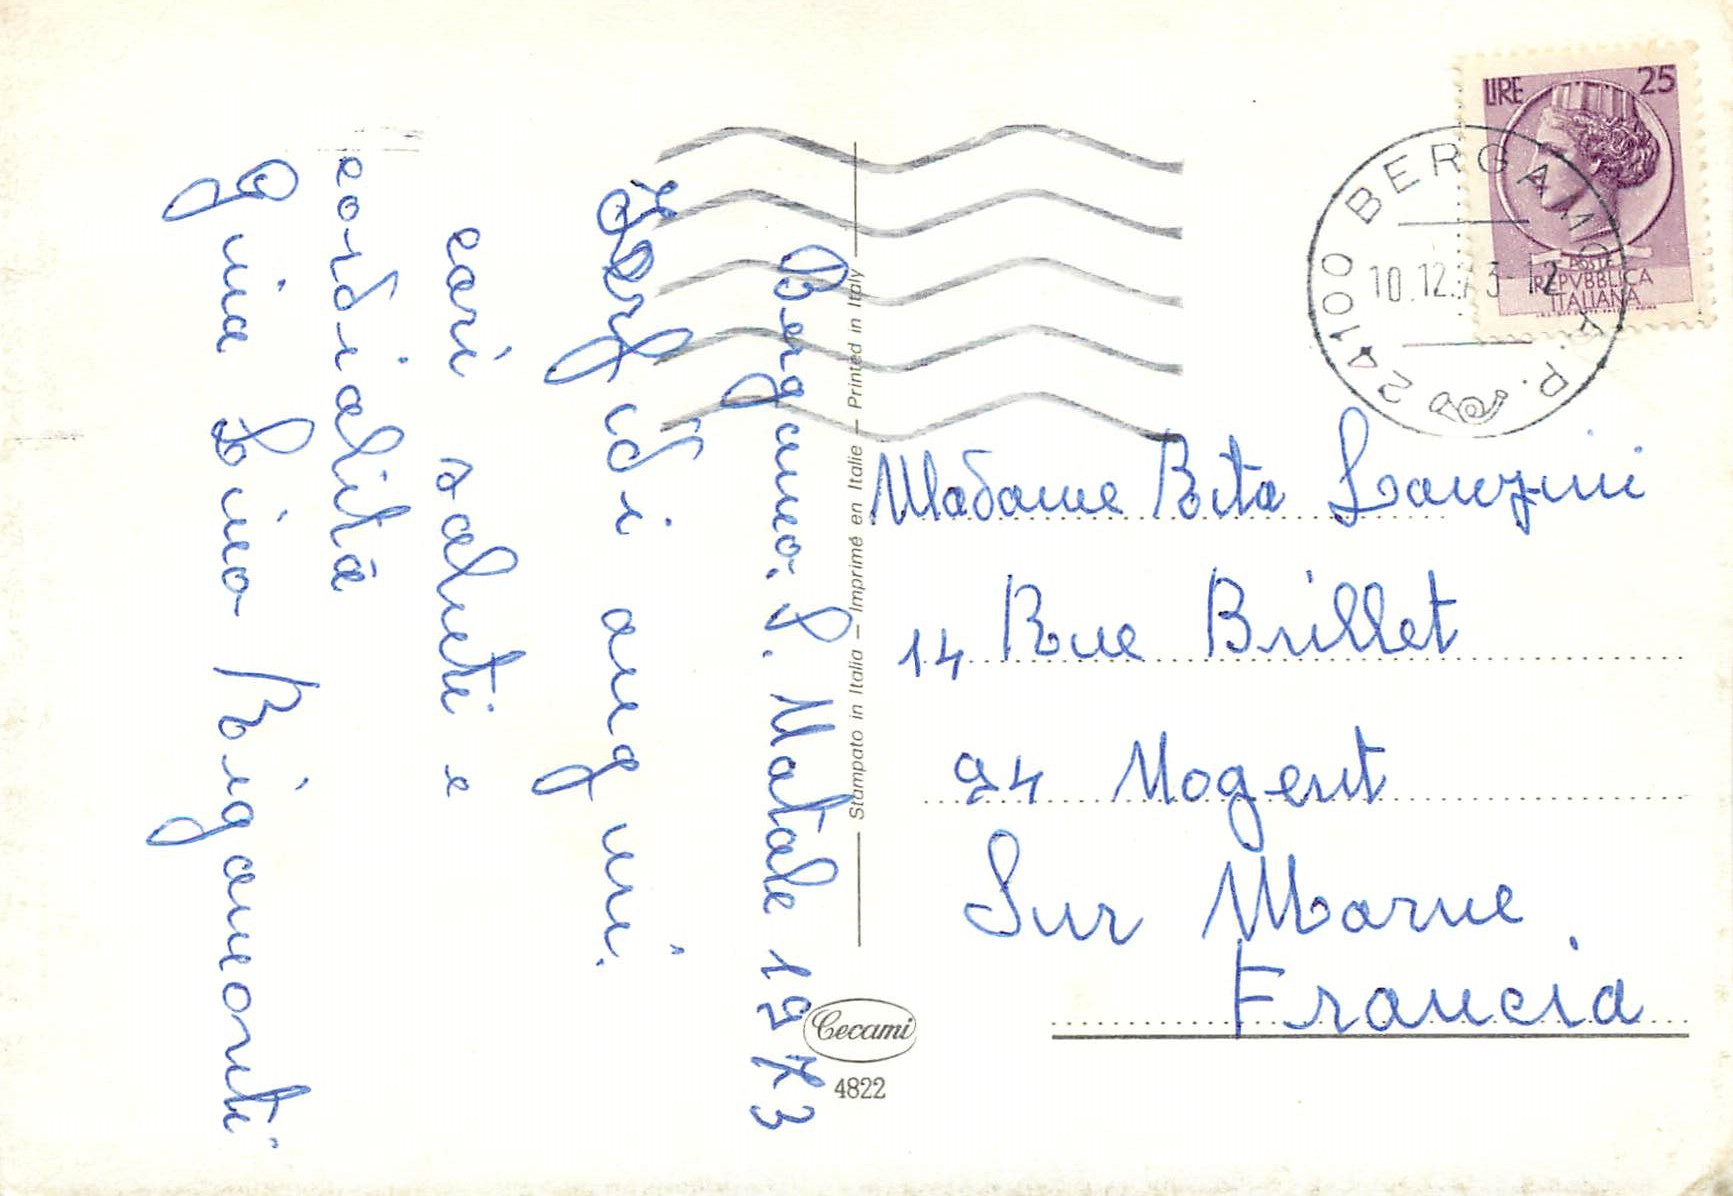 Bergamo. S. Natale 1973
Fervidi auguri.
cari saluti e
cordialità
Gina Lino Rigamonti
Stampato in Italia — Imprimé en Italie — Printed in Italy
Cecami
4822
LIRE 25
POSTE
REPVBBLICA
ITALIANA
24100 BERGAMO A.P.
10.12.73-12
Madame Rita Lanzini
14 Rue Brillet
94 Nogent
Sur Marne
Francia